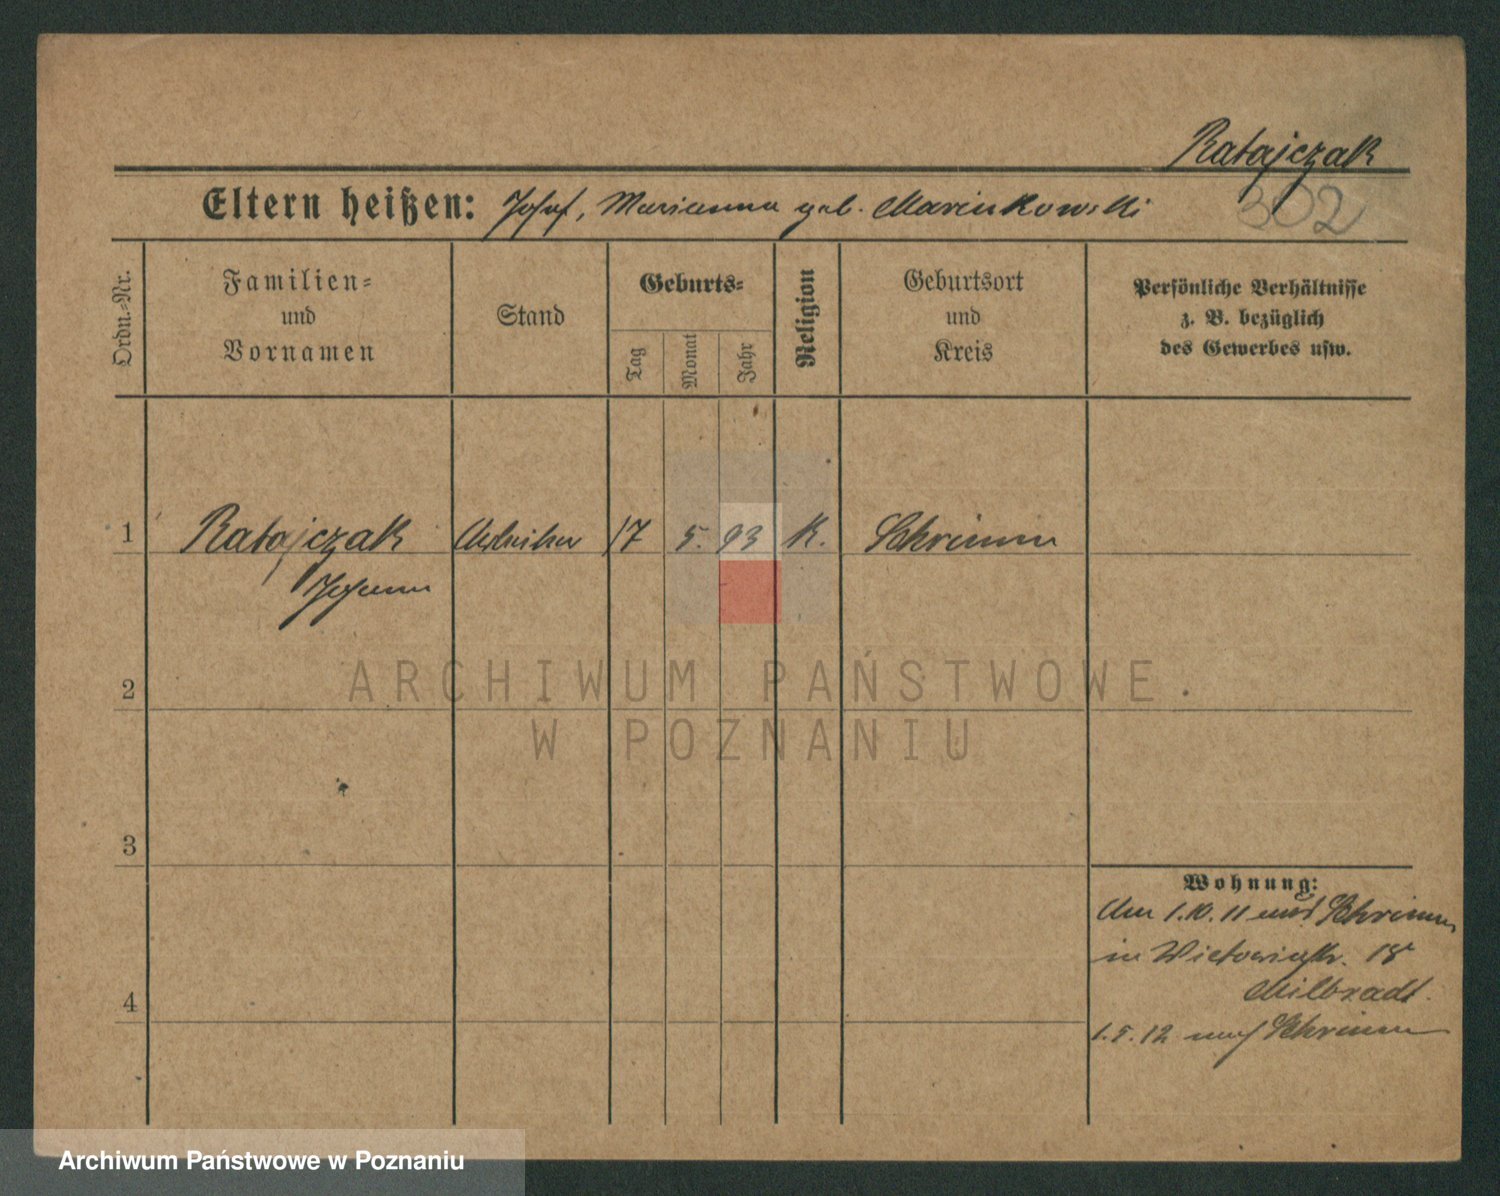 Ratajczak
Eltern heißen: Josef, Marianna geb. Marcinkowski
302
Ordn.-Nr.
Familien-
und
Vornamen
Stand
Geburts-
Tag
Monat
Jahr
Religion
Geburtsort
und
Kreis
Persönliche Verhältnisse
z. B. bezüglich
des Gewerbes usw.
1 Ratajczak Arbeiter 17 5. 93 K. Schrimm
Johann
2
3
4
Wohnung:
1.10.11 Schrimm
in Victoriastr. 18
Milbradt.
1.5.12 nach Schrimm
ARCHIWUM PAŃSTWOWE
W POZNANIU
Archiwum Państwowe w Poznaniu